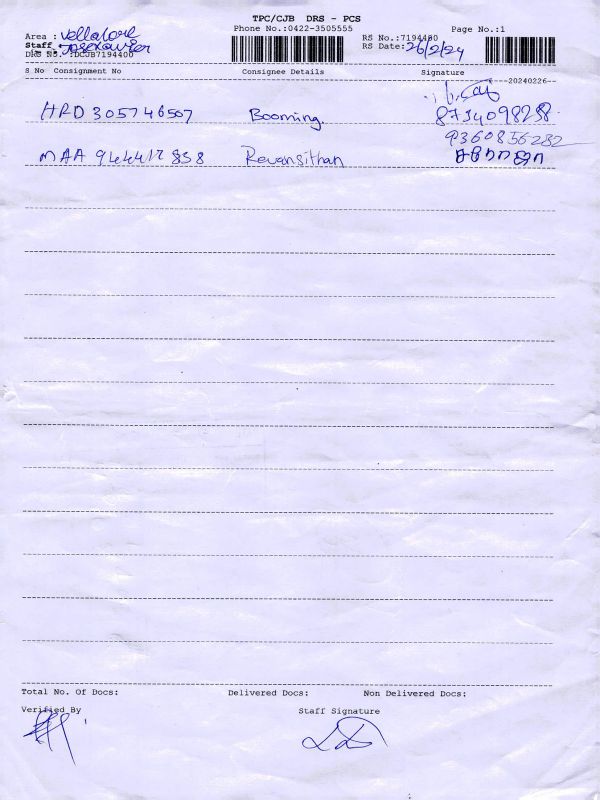 TPC/CJB DRS - PCS
Phone No.:0422-3505555
Page No.:1
Area : Vellalore
RS No.:7194400
Staff : Josexavier
RS Date: 26/2/24
DRS No. :DCJB7194400
S No Consignment No Consignee Details Signature
20240226
HRD 305746507 Booming. 8734098258
9360856282
MAA 944412838 Revansithan
Total No. Of Docs: Delivered Docs: Non Delivered Docs:
Verified By Staff Signature